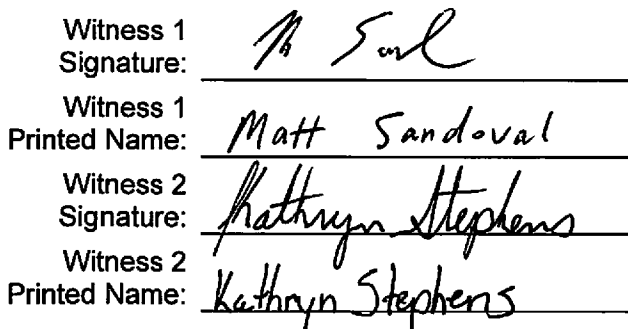 Witness 1
Signature:
Witness 1
Printed Name: Matt Sandoval
Witness 2
Signature: Kathryn Stephens
Witness 2
Printed Name: Kathryn Stephens